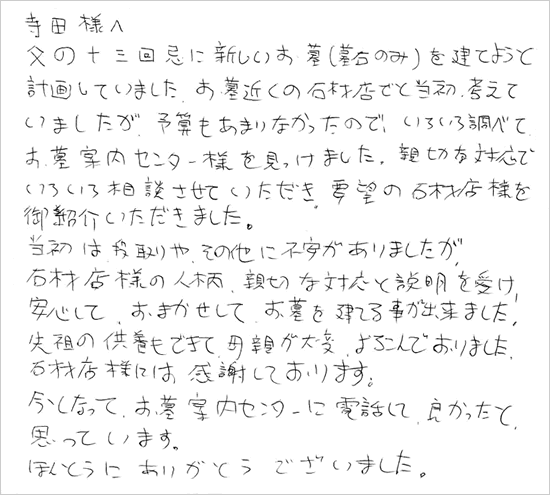 寺田様へ
父の十三回忌に新しいお墓(墓石のみ)を建てようと
計画していました。お墓近くの石材店でと当初、考えて
いましたが、予算もあまりなかったので、いろいろ調べて
お墓案内センター様を見つけました。親切な対応で
いろいろ相談させていただき、要望の石材店様を
御紹介いただきました。
当初は段取りや、その他に不安がありましたが、
石材店様の人柄、親切な対応と説明を受け、
安心して、おまかせして、お墓を建てる事が出来ました。
先祖の供養もできて、母親が大変、よろこんでおりました。
石材店様には感謝しております。
今となって、お墓案内センターに電話して、良かったと
思っています。
ほんとうにありがとうございました。